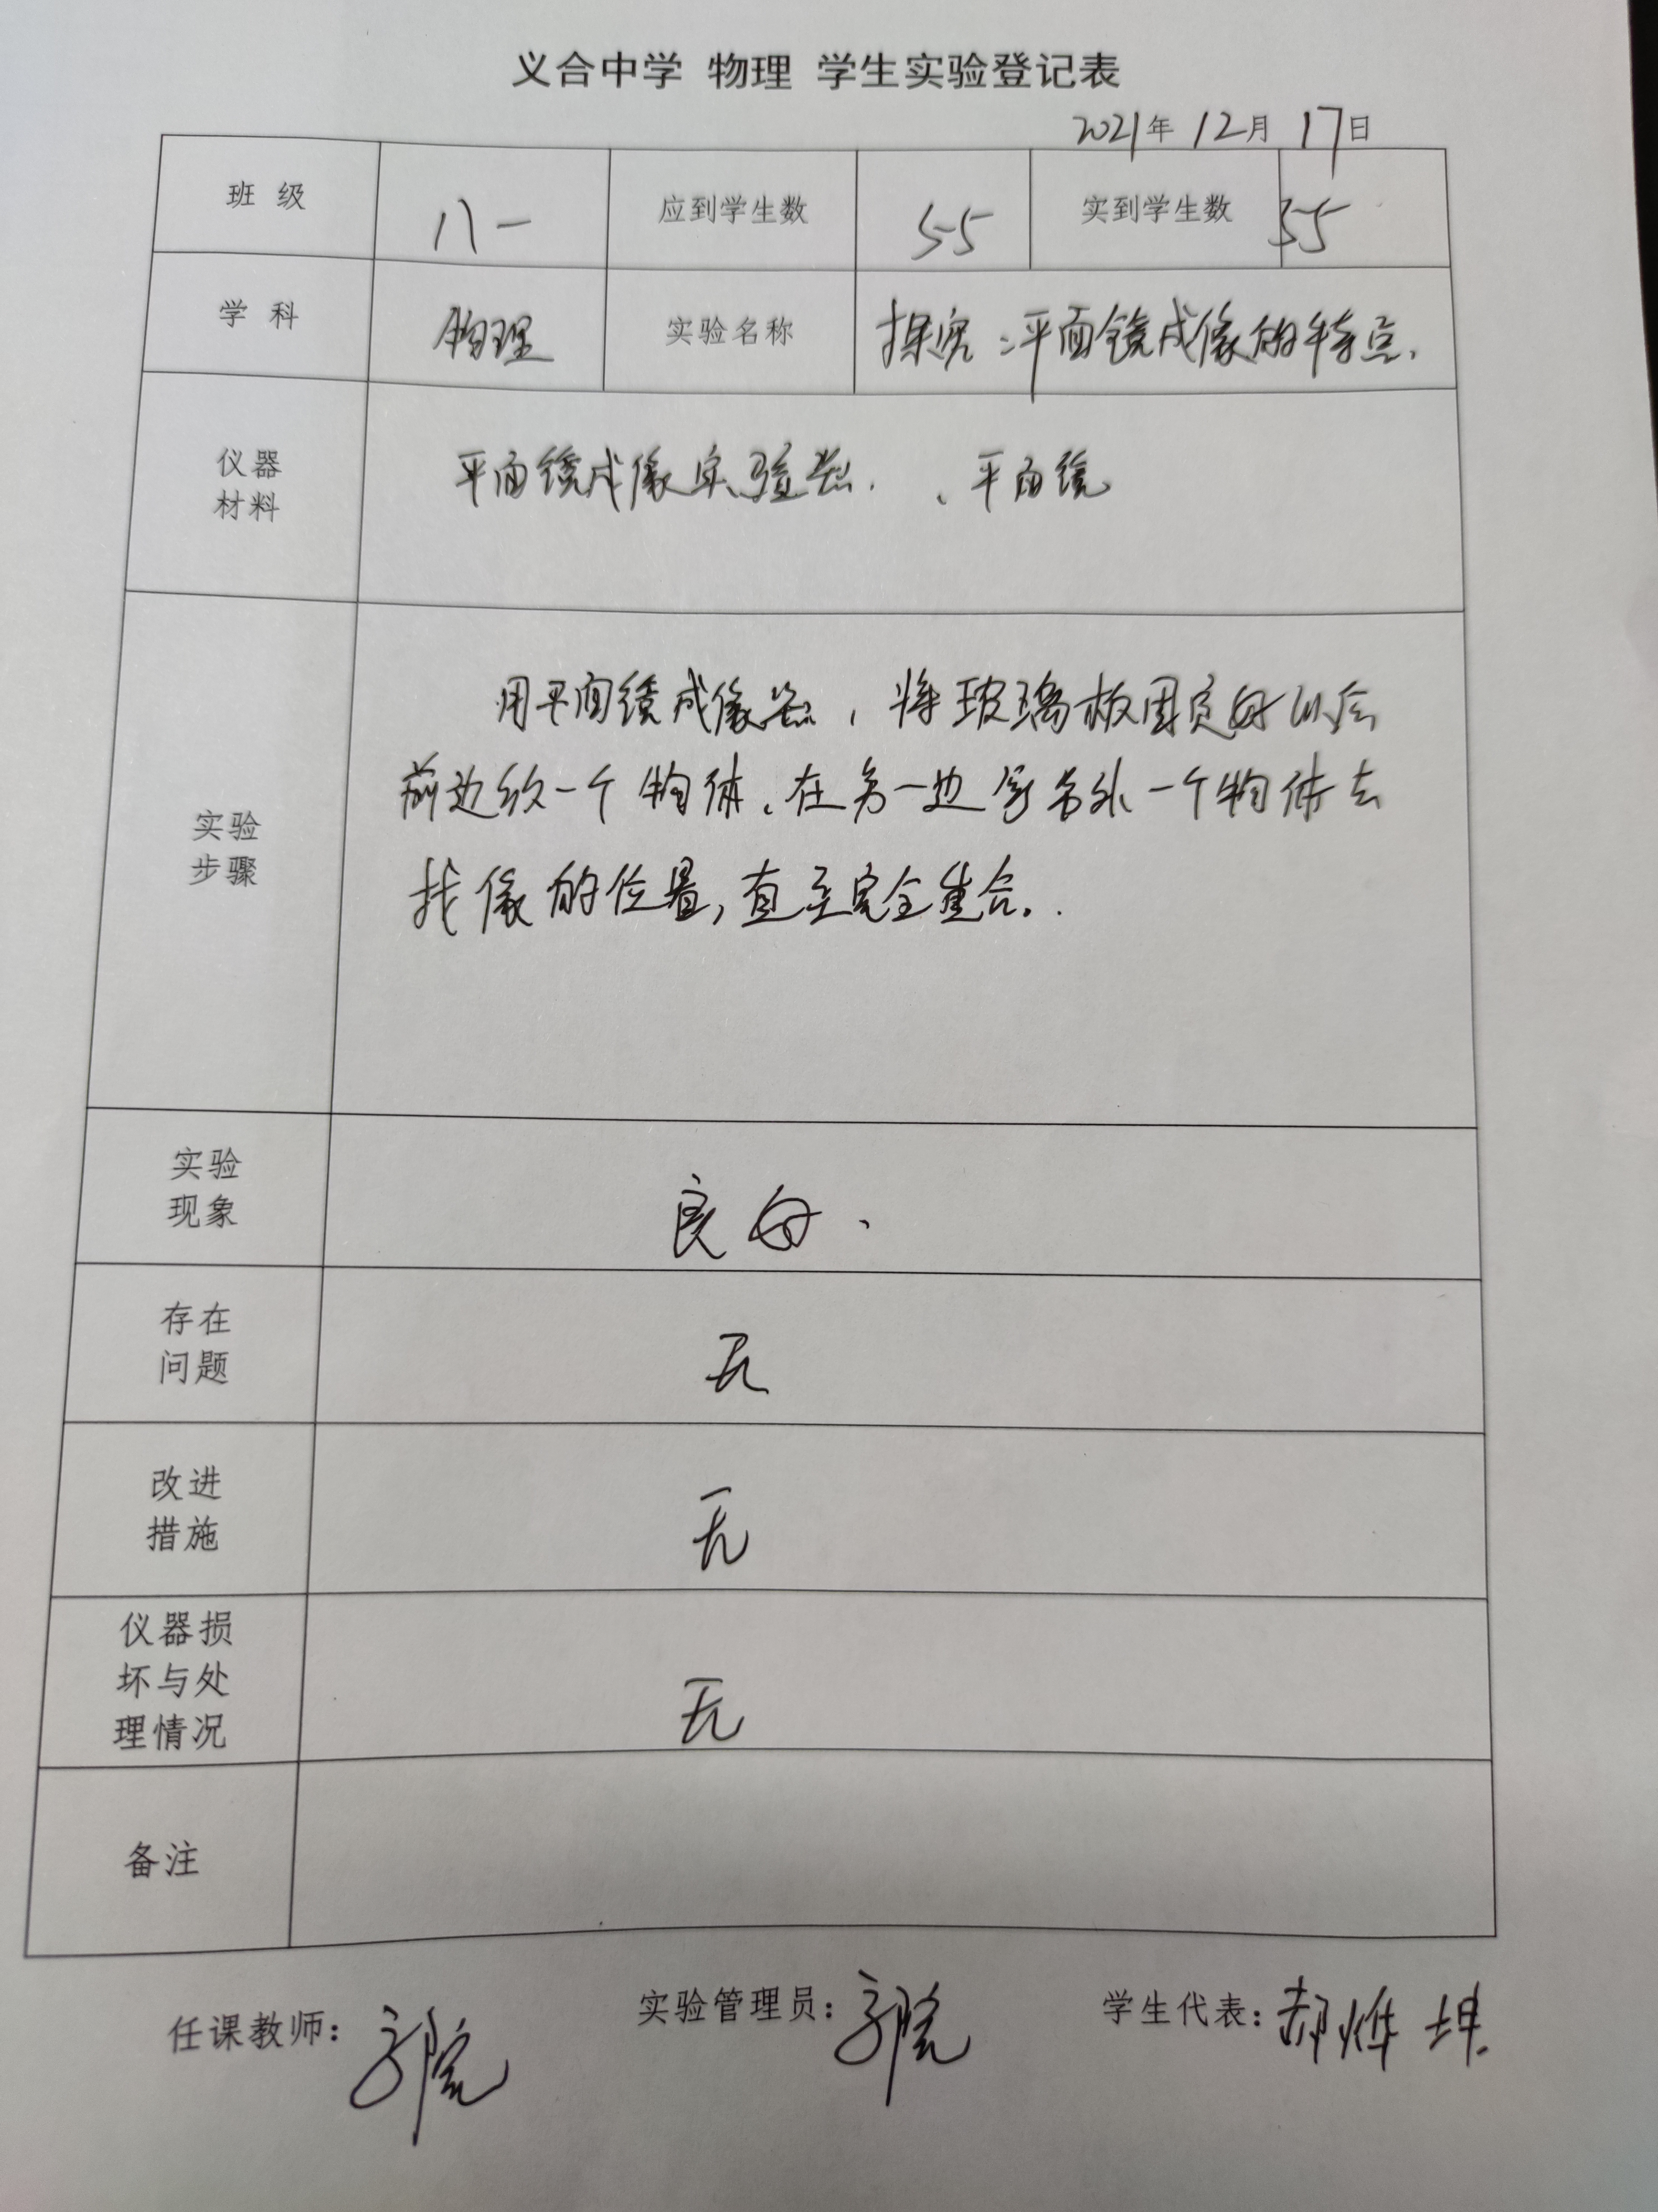 义合中学 物理 学生实验登记表
2021年 12月 17日
班 级 八一 应到学生数 55 实到学生数 55
学 科 物理 实验名称 探究:平面镜成像的特点.
仪器
材料
平面镜成像实验器. 、平面镜
实验
步骤
用平面镜成像器,将玻璃板固定好以后
前边放一个物体.在另一边 另外一个物体去
找像的位置,直至完全重合.
实验
现象
良好.
存在
问题
无
改进
措施
无
仪器损
坏与处
理情况
无
备注
任课教师: 实验管理员: 学生代表:郝烨坤